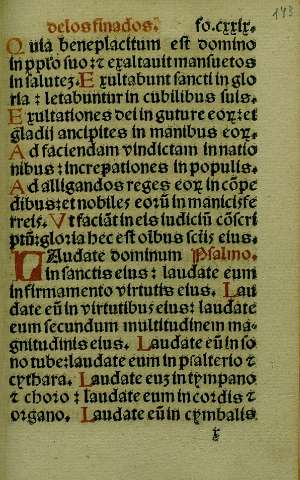 delos finados. fo.cxxix.
143
Quia beneplacitum est domino
in pp̃ro suo: ⁊ exaltauit mansuetos
in salutez. Exultabunt sancti in glo
ria: letabuntur in cubilibus suis.
Exultationes dei in guture eoꝝ: et
gladij ancipites in manibus eoꝝ.
Ad faciendam vindictam in natio
nibus: increpationes in populis.
Ad alligandos reges eoꝝ in cõpe
dibus: et nobiles eorũ in manicis fe
rreis. Ut faciãt in eis iudiciũ cõscri
ptũ: gloria hec est oĩbus sc̃iis eius.
LAudate dominum Psalmo.
in sanctis eius: laudate eum
in firmamento virtutis eius. Lau
date eũ in virtutibus eius: laudate
eum secundum multitudinem ma-
gnitudinis eius. Laudate eũ in so
no tube: laudate eum in psalterio ⁊
cythara. Laudate euz in tympano
⁊ choro: laudate eum in cordis ⁊
organo. Laudate eũ in cymbalis